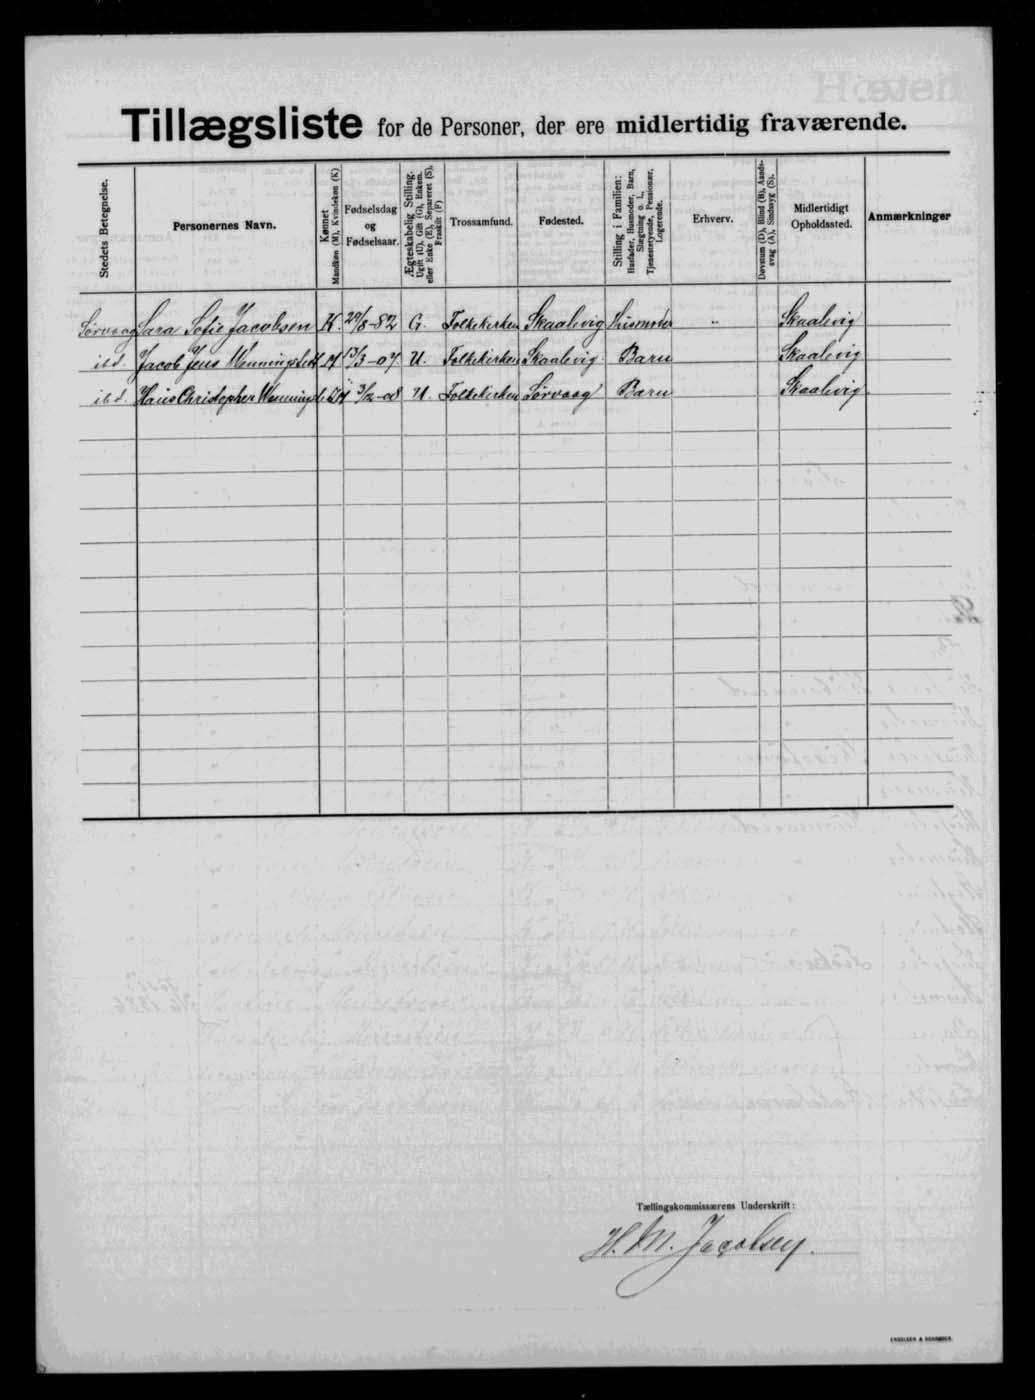 Tillægsliste for de Personer, der ere midlertidig fraværende.
Stedets Betegnelse.
Personernes Navn.
Kønnet
Mandkøn (M), Kvindekøn (K)
Fødselsdag
og
Fødselsaar.
Ægteskabelig Stilling.
Ugift (U), Gift (G), Enkem.
eller Enke (E), Separeret (S),
Fraskilt (F)
Trossamfund.
Fødested.
Stilling i Familien:
Husfader, Husmoder, Barn,
Slægtning o. l.,
Tjenestetyende, Pensionær,
Logerende.
Erhverv.
Døvstum (D), Blind (B), Aands-
svag (A), Sindssyg (S).
Midlertidigt
Opholdssted.
Anmærkninger
Sørvaag Sara Sofie Jacobsen K. 29/8-82 G. Folkekirken Skaalevig Husmoder " Skaalevig
ibd. Jacob Jens Wenningstedt M 13/3-07 U. Folkekirken Skaalevig Barn Skaalevig
ibd. Hans Christopher M 3/12-08 U. Folkekirken Sørvaag Barn Skaalevig
Tællingskommissærens Underskrift:
H. M. Jacobsen.